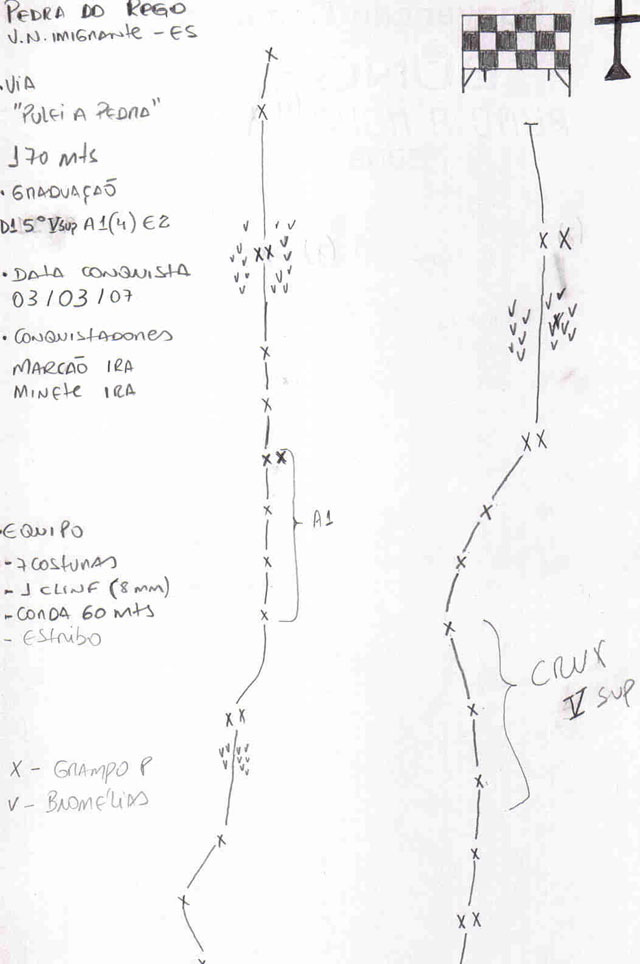 PEDRA DO REGO
V.N. IMIGRANTE - ES
• VIA
"PULEI A PEDRA"
170 mts
• GRADUAÇÃO
D1 5º Vsup A1(4) E2
• DATA CONQUISTA
03/03/07
• CONQUISTADORES
MARCÃO IRA
MINETE IRA
• EQUIPO
- 7 COSTURAS
- 1 CLINF (8mm)
- CORDA 60 mts
- ESTRIBO
X - GRAMPO P
V - BROMÉLIAS
A1
CRUX
V SUP